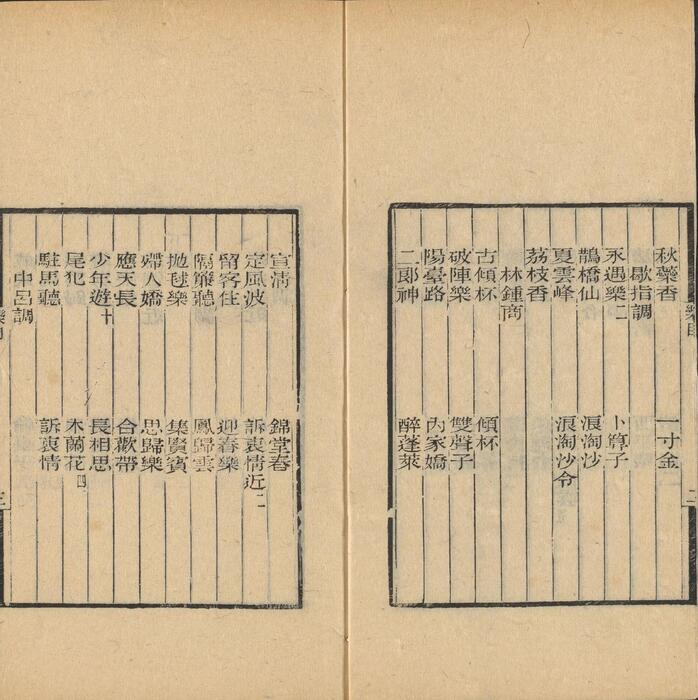 樂目 二
秋蘂香 一寸金
歇指調
永遇樂二 卜算子
鵲橋仙 浪淘沙
夏雲峰 浪淘沙令
荔枝香
林鍾商
古傾杯 傾杯
破陣樂 雙聲子
陽臺路 內家嬌
二郎神 醉蓬萊
宣清 錦堂春
定風波 訴衷情近二
留客住 迎春樂
隔簾聽 鳳歸雲
拋毬樂 集賢賓
殢人嬌 思歸樂
應天長 合歡帶
少年遊十 長相思
尾犯 木蘭花四
駐馬聽 訴衷情
中呂調